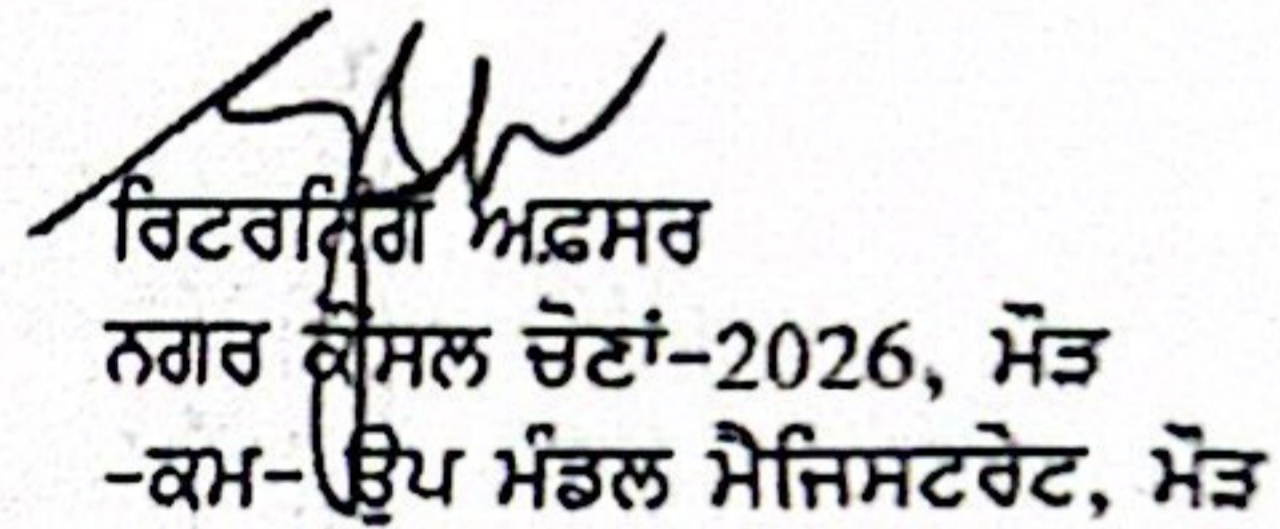 ਰਿਟਰਨਿੰਗ ਅਫ਼ਸਰ
ਨਗਰ ਕੌਂਸਲ ਚੋਣਾਂ-2026, ਮੌੜ
-ਕਮ-ਉਪ ਮੰਡਲ ਮੈਜਿਸਟਰੇਟ, ਮੌੜ